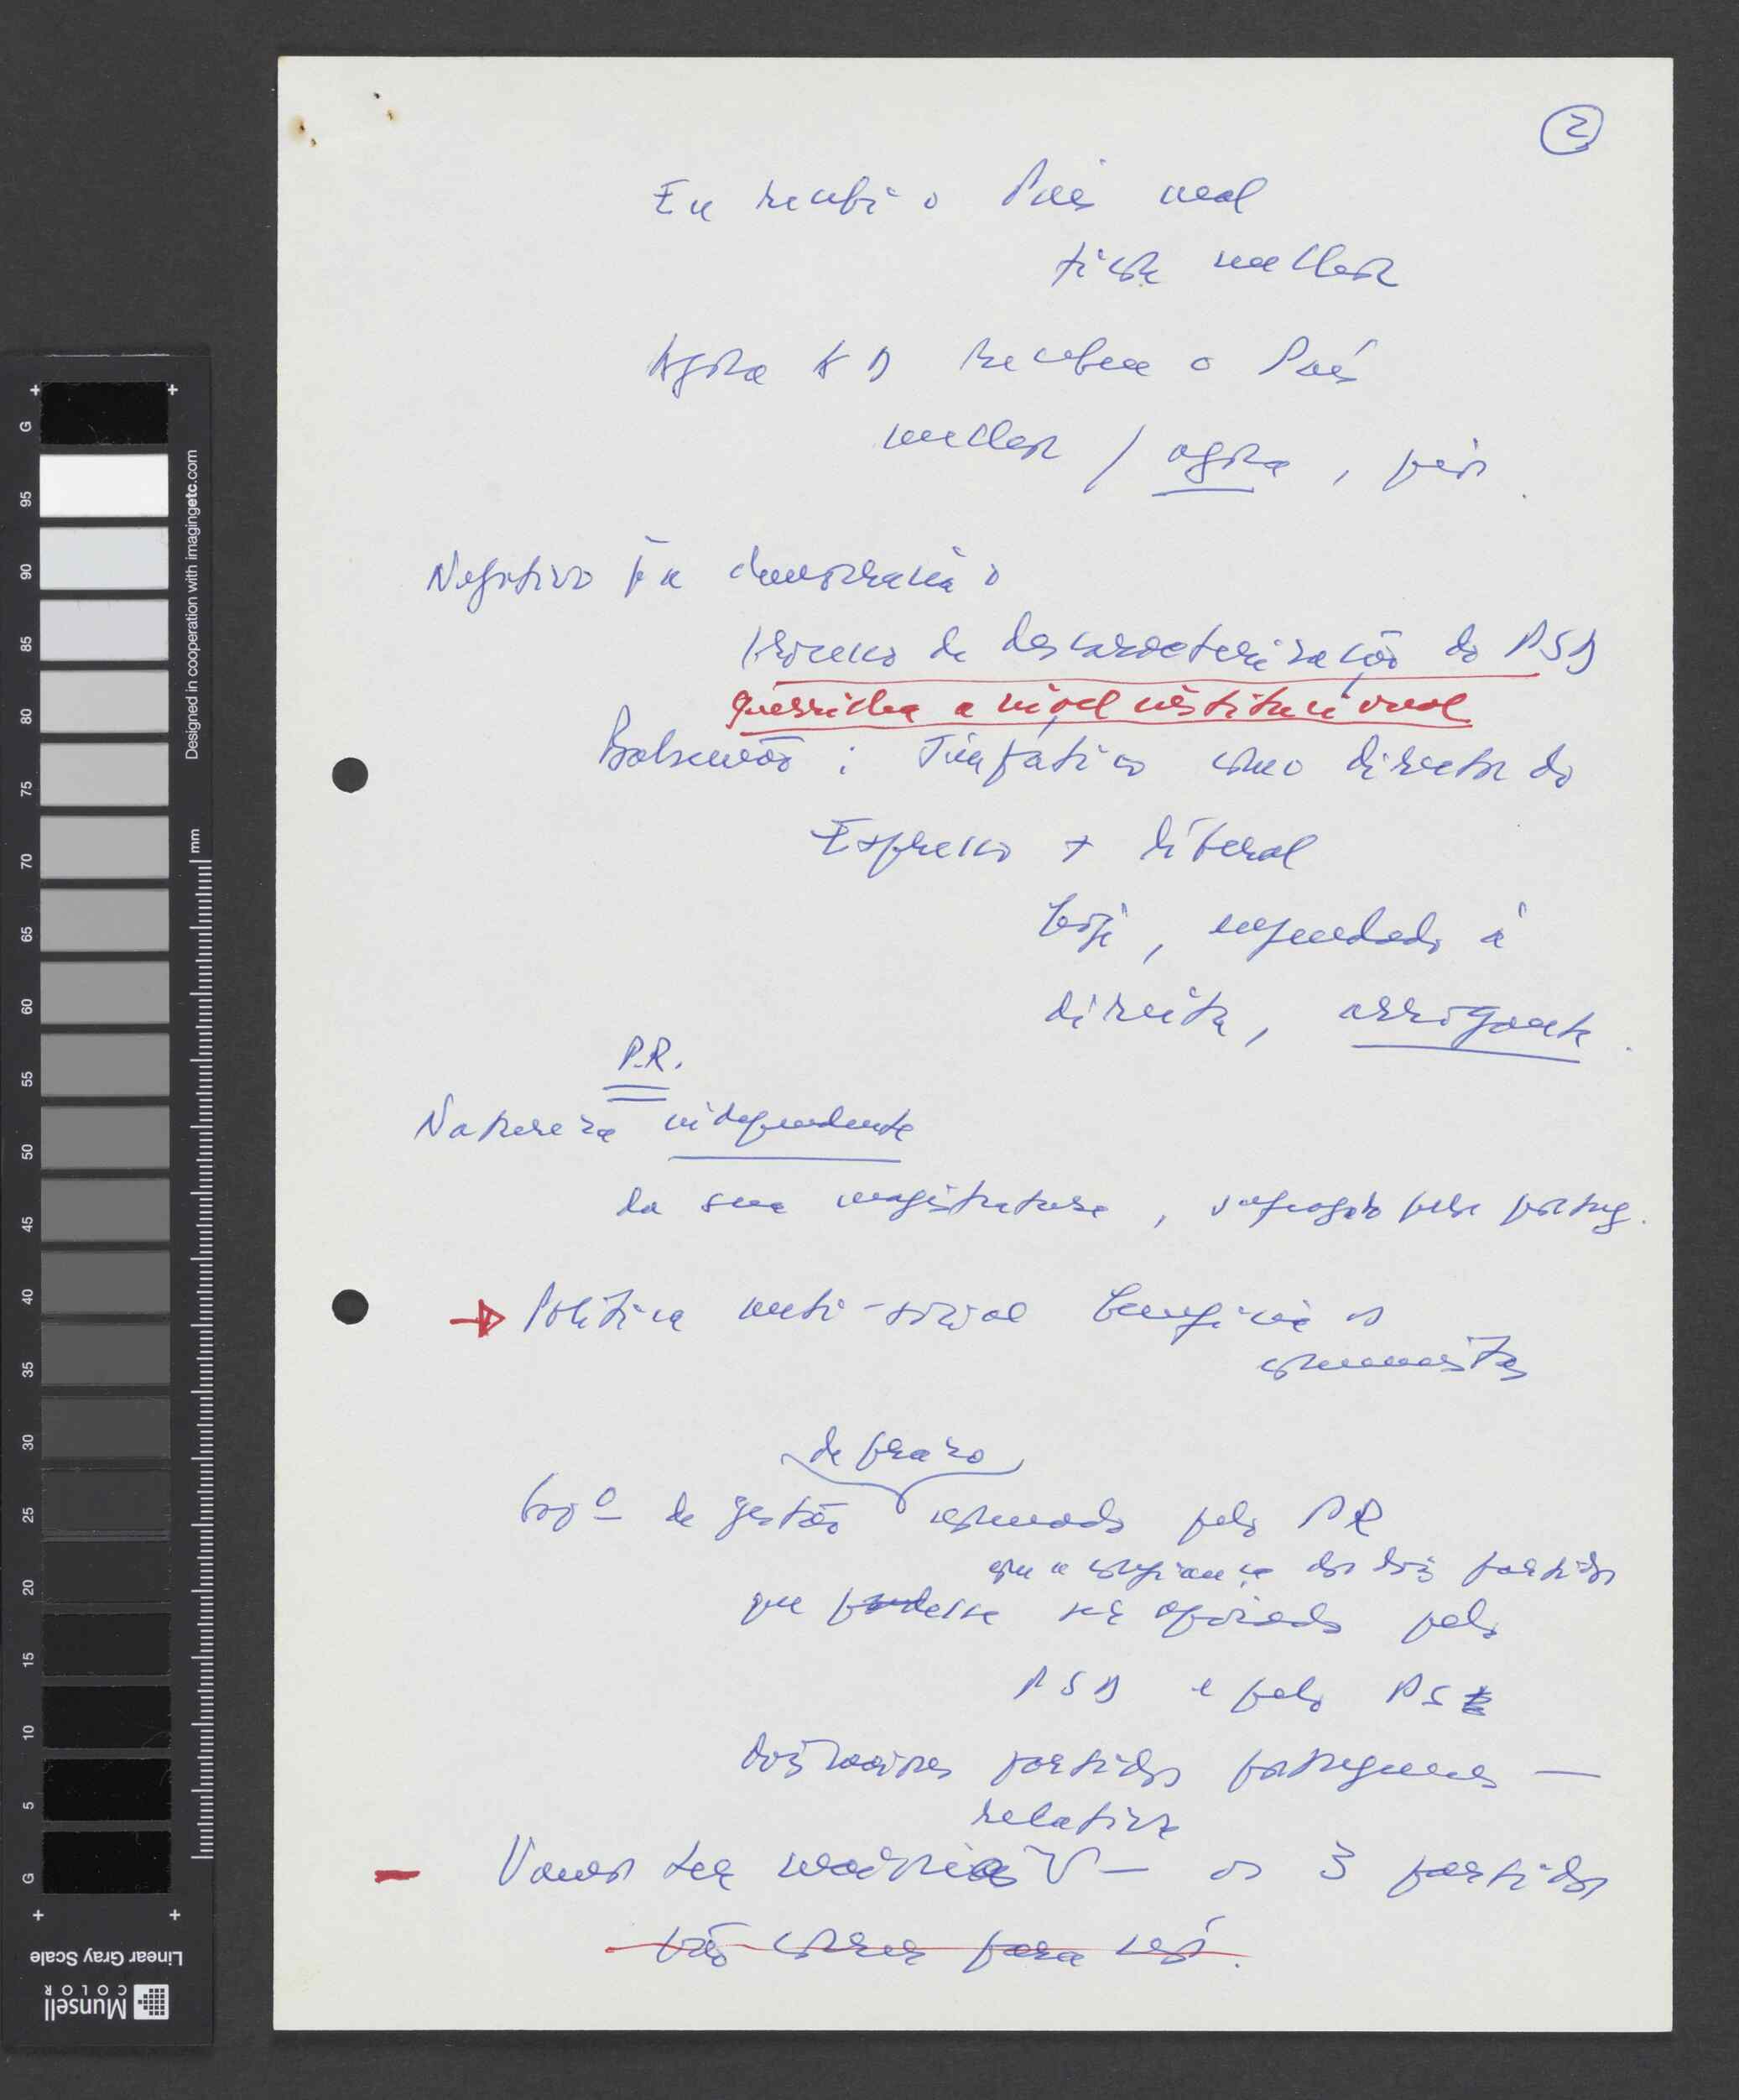 2
Eu recebi o País mal
melhor
Agora AD recebeu o País
melhor / agora, pior.
Negativo p<sup>a</sup> a democracia o
processo de descaracterização do PSD
guerrilha a nível institucional
Balsemão: Simpático como director do
Expresso + liberal
hoje, à
direita, arrogante.
P.R.
Natureza independente
da sua magistratura, sufragado pelos portug.
→ Política anti-social beneficia os
comunistas
de prazo
Govº de gestão formado pelo PR
com a confiança dos dois partidos
que pudesse ser apoiado pelo
PSD e pelo PS
dois maiores partidos portugueses —
relativa
- Vamos ter maioria — os 3 partidos
vão correr para nós.
Designed in cooperation with imagingetc.com
mm
G 95 90 85 80 75 70 65 60 55 50 45 40 35 30 25 20 15 10 5 G
Linear Gray Scale
Munsell
COLOR